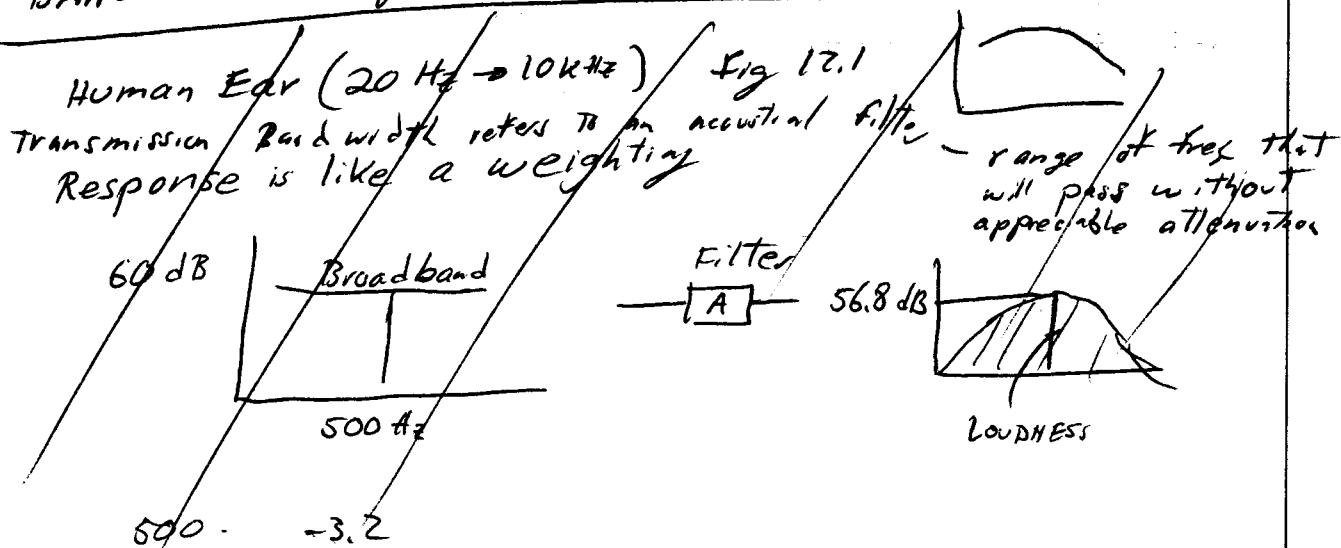 Human Ear (20 Hz → 10 kHz) Fig 17.1
Transmission Bandwidth refers to an accustial filter – range of freq that
will pass without
appreciable attenuation
Response is like a weighting
60 dB
Broadband
500 Hz
Filter
A
56.8 dB
LOUDNESS
500 -3.2